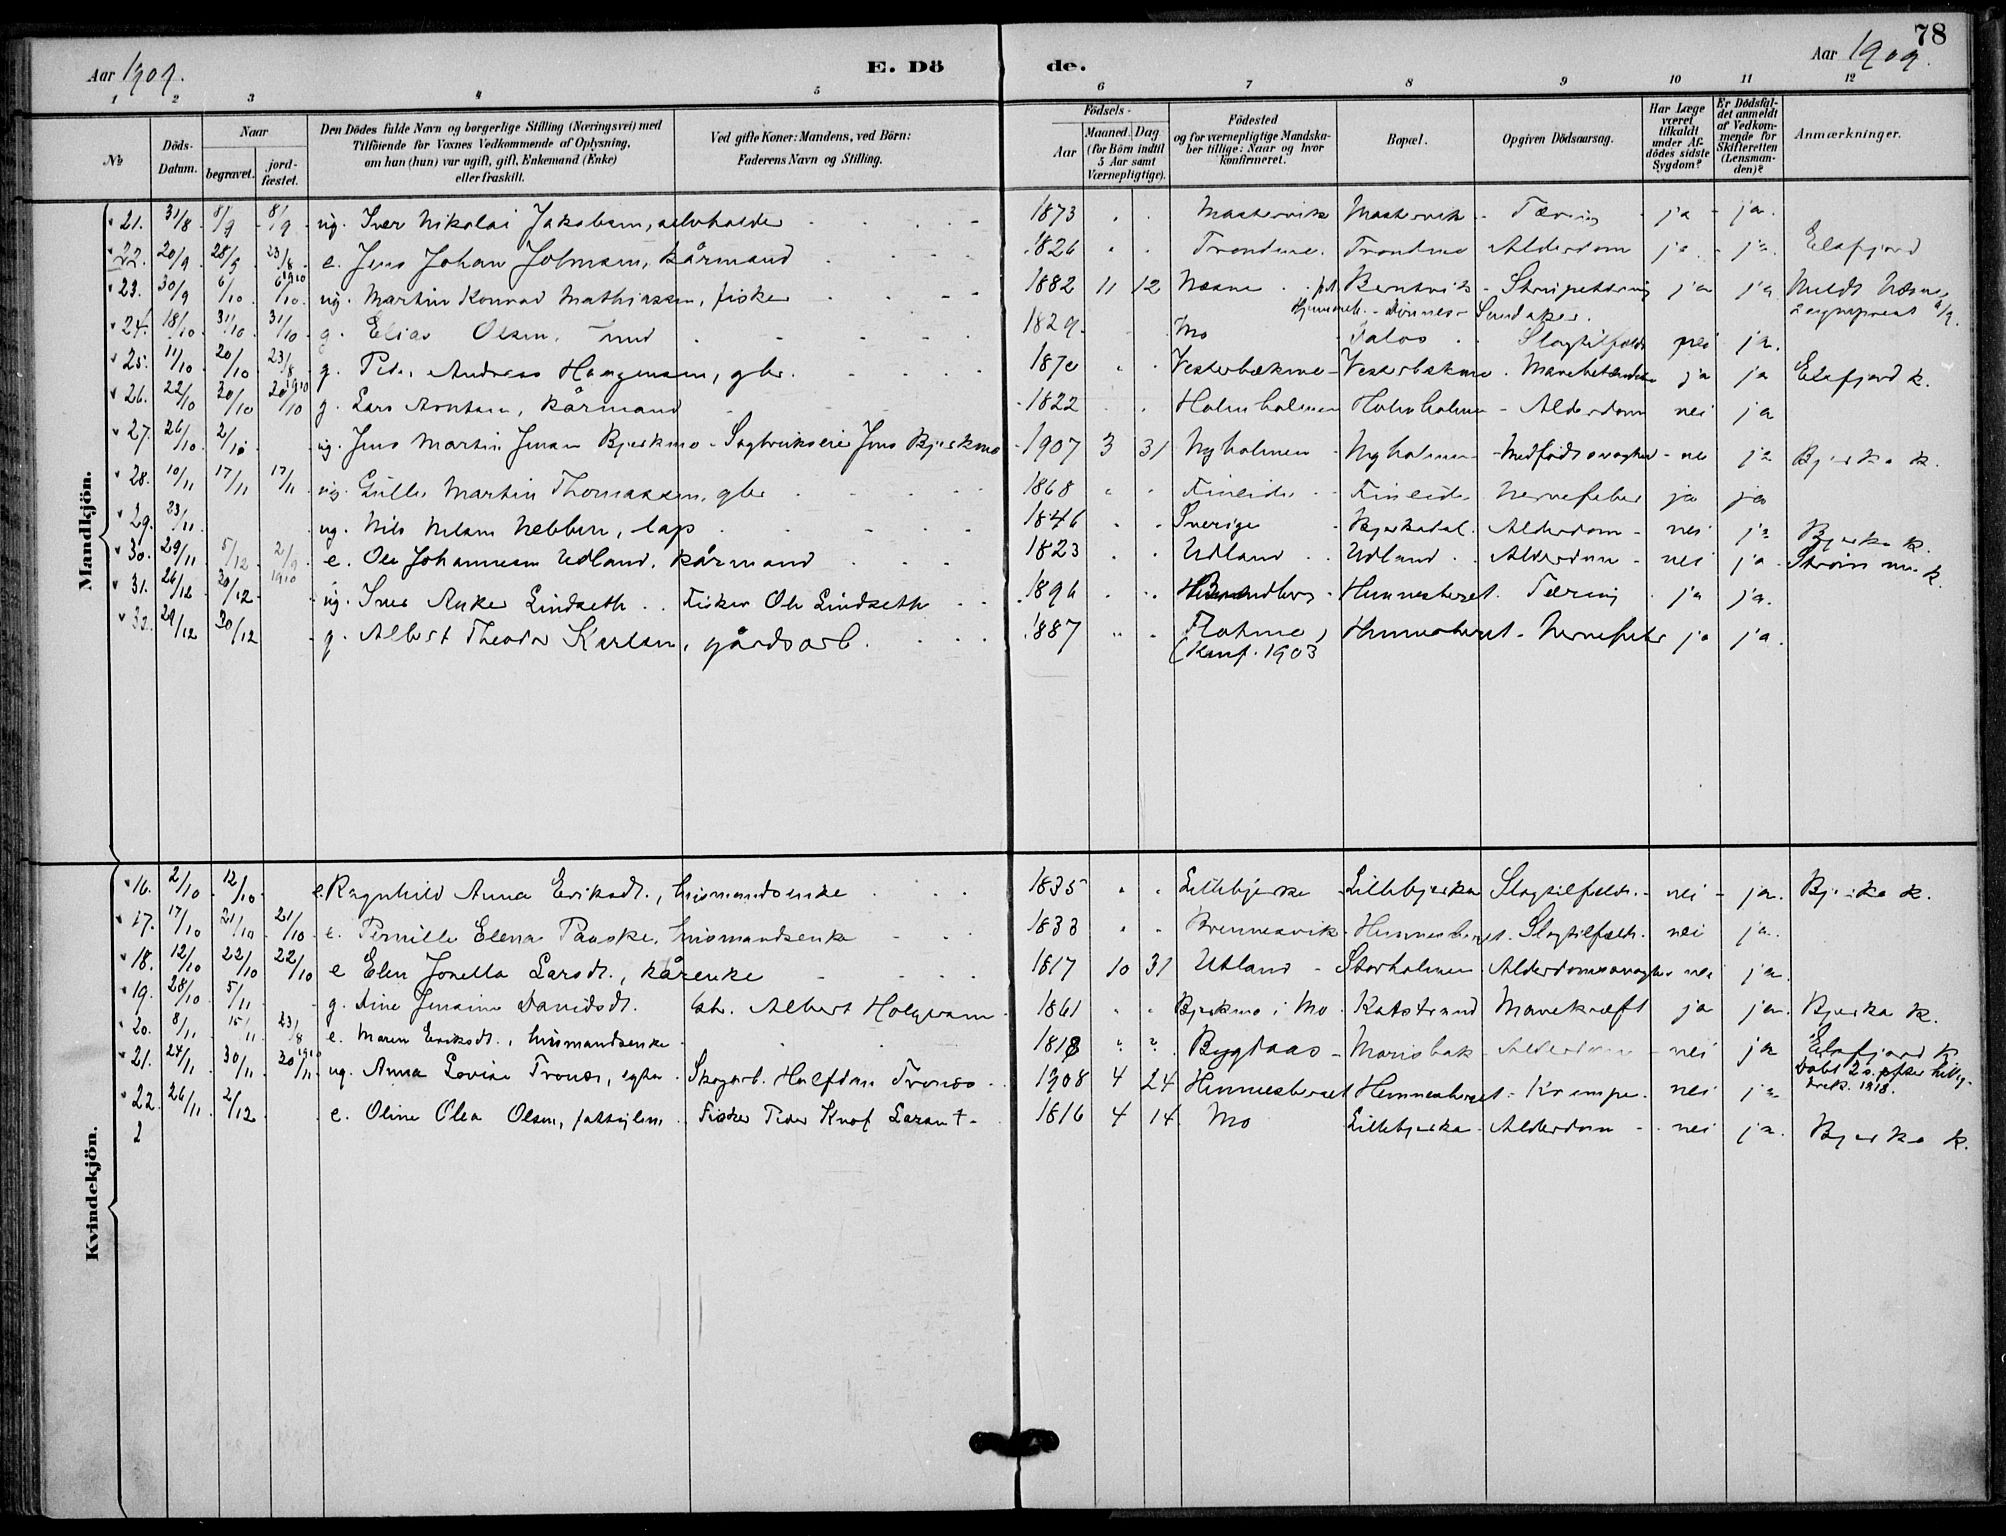 78
Aar 1909.
E. Dö
de.
Aar 1909.
1 2 3 4 5 6 7 8 9 10 11 12
No
Döds-Datum.
Naar
begravet.
jord-fæstet.
Den Dödes fulde Navn og borgerlige Stilling (Næringsvei) med
Tilföiende for Voxnes Vedkommende af Oplysning,
om han (hun) var ugift, gift, Enkemand (Enke)
eller fraskilt.
Ved gifte Koner: Mandens, ved Börn:
Faderens Navn og Stilling.
Födsels-
Aar
Maaned. Dag
(for Börn indtil
5 Aar samt
Værnepligtige).
Födested
og for værnepligtige Mandska-
ber tillige: Naar og hvor
konfirmeret.
Bopæl.
Opgiven Dödsaarsag.
Har Læge
været
tilkaldt
under Af-
dödes sidste
Sygdom?
Er Dödsfal-
det anmeldt
af Vedkom-
mende for
Skifteretten
(Lensman-
den)?
Anmærkninger.
Mandkjön.
21. 31/8 8/9 8/9 ug. Iver Nikolai Jakobsen, selvholder 1873 Mastervik Mastervik Tæring ja ja.
22. 20/9 28/9 23/8 1910 e. Jens Johan Johnsen, kårmand 1826 Trondmo Trondmo Alderdom ja ja Elsfjord
23. 30/9 6/10 6/10 ug. Martin Konrad Mathiassen, fisker 1882 11 12 Næsne Strupetæring ja ja Meldt Næsne
24. 18/10 31/10 31/10 g. Elias Olsen 1829 Mo Slagtilfælde nei ja.
25. 11/10 20/10 23/8 1910 g. Peder Andreas Haagensen, gbr. 1870 Vesterbækmo Vesterbækmo Mavebetændelse ja ja Elsfjord k.
26. 22/10 30/10 30/10 g. Lars Arntsen, kårmand 1822 Holmholmen Holmholmen Alderdom nei ja
27. 26/10 2/10 ug. Jens Martin Jensen Bjerkmo Sagbrukseier Jens Bjerkmo 1907 3 31 Nyholmen Nyholmen Medfødt svaghed nei ja Bjerka k.
28. 10/11 17/11 17/11 ug. Martin Thomassen, gbr 1868 Fineide Fineide Nervefeber ja ja
29. 23/11 ug. Nils Nilsen Nebben, lap 1846 Sverige Bjerkadal. Alderdom nei ja Bjerka k.
30. 29/11 5/12 2/9 1910 e. Ole Johannesen Udland, kårmand 1823 Udland Udland Alderdom nei ja
31. 26/12 30/12 ug. Iver Anker Lindseth Fisker Ole Lindseth 1896 Hemnesberget. Tæring ja ja.
32. 29/12 30/12 g. Albert Theodor Karlsen, gårdsarb. 1887 Flatmo, Hemnesberget Nervefeber ja ja.
(Konf. 1903
Kvindekjön.
16. 2/10 12/10 e. Ragnhild Anna Eriksdt., husmandsenke 1835 Lillebjerka Lillebjerka Slagtilfælde nei ja. Bjerka k.
17. 17/10 21/10 21/10 e. Pernille Elena Paaske, husmandsenke 1833 Brennesvik Hemnesberget. Slagtilfælde nei ja.
18. 12/10 22/10 22/10 e Elen Jonetta Larsdt., kårenke 1817 10 31 Utland Storholmen Alderdomssvaghed nei ja.
19. 28/10 5/11 g. Jensine Davidsdt. Gbr. Albert 1861 Bjerkmo i Mo Katstrand Mavekræft ja ja. Bjerka k.
20. 8/11 15/11 23/8 1910 e. Maren Eriksdt., husmandsenke 1818 Bygdaas Marisbak Alderdom nei ja Elsfjord k
21. 24/11 30/11 30/11 ug. Anna Lovise Tronæs, egtes. Skogarb. Halfdan Tronæs 1908 4 24 Hemnesberget Hemnesberget Krampe nei ja
22. 26/11 2/12 e. Oline Olea Olsen, fattiglem Fisker Peder Knof Larsen † 1816 4 14 Mo Lillebjerka Alderdom nei ja. Bjerka k.
2